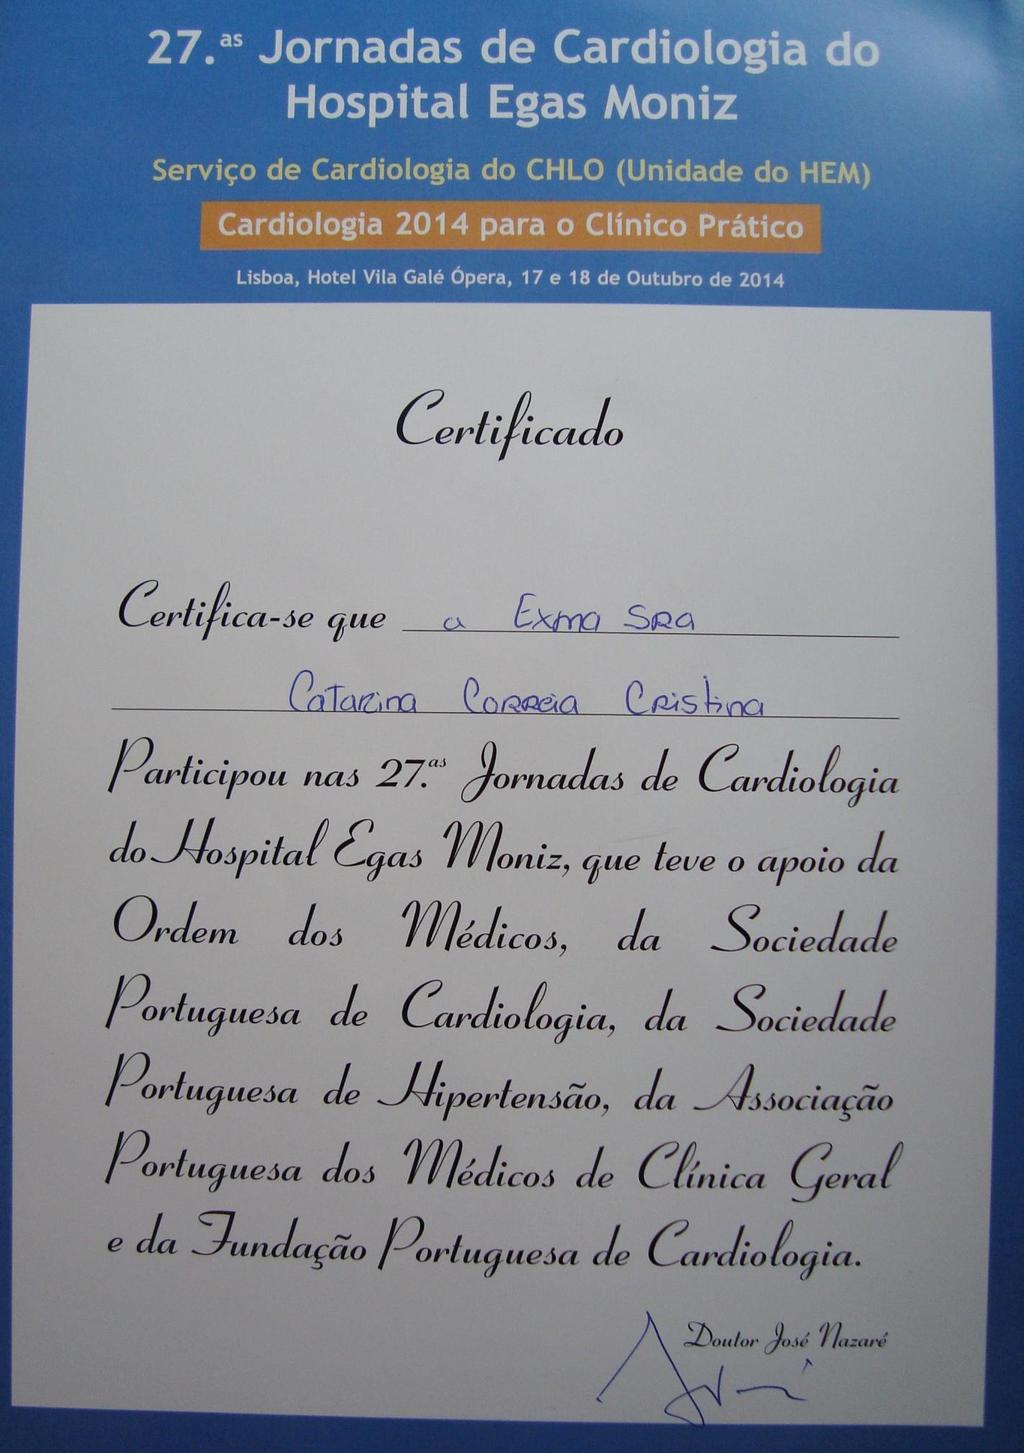 27.as Jornadas de Cardiologia do
Hospital Egas Moniz
Serviço de Cardiologia do CHLO (Unidade do HEM)
Cardiologia 2014 para o Clínico Prático
Lisboa, Hotel Vila Galé Ópera, 17 e 18 de Outubro de 2014
Certificado
Certifica-se que a Exma Sra
Catarina Correia Cristina
Participou nas 27.as Jornadas de Cardiologia
do Hospital Egas Moniz, que teve o apoio da
Ordem dos Médicos, da Sociedade
Portuguesa de Cardiologia, da Sociedade
Portuguesa de Hipertensão, da Associação
Portuguesa dos Médicos de Clínica Geral
e da Fundação Portuguesa de Cardiologia.
Doutor José Nazaré